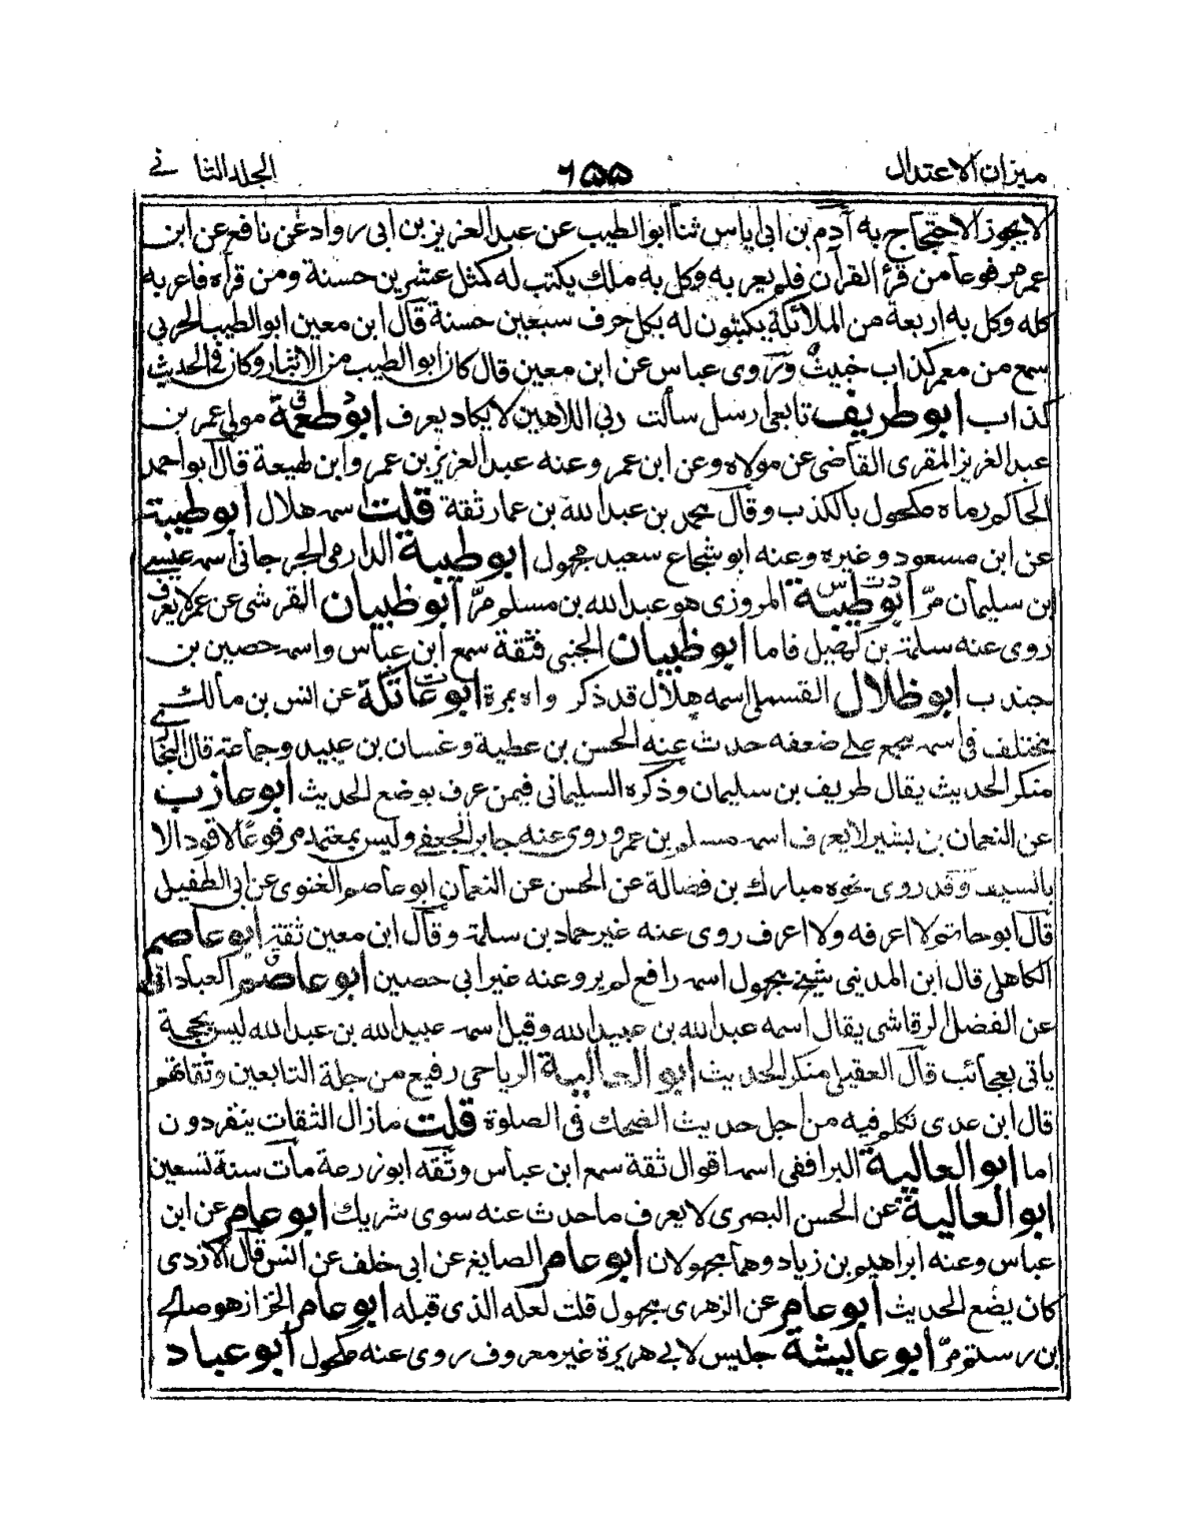 ميزان الاعتدال ٦٥٥ المجلد الثاني
لا يجوز الاحتجاج به آدم بن ابي ياس ثنا ابو الطيب عن عبد العزيز بن ابى رواد عن نافع عن ابن
عمر مرفوعا من قرأ القرآن فلم يعربه وكل به ملك يكتب له كمثل عشرين حسنة ومن قرأه فاعربه
كله وكل به اربعة من الملائكة يكتبون له بكل حرف سبعين حسنة قال ابن معين ابو الطيب الحربي
سمع من معمر كذاب خبيث وروى عباس عن ابن معين قال كان ابو الطيب من الانبار وكان فى الحديث
كذاب ابو طريف تابعى ارسل سألت ربى اللاهين لا يكاد يعرف ابو طعمة مولى عمر بن
عبد العزيز المقرى القاضى عن مولاه وعن ابن عمر وعنه عبد العزيز بن عمر وابن لهيعة قال ابو احمد
الحاكم رماه مكحول بالكذب وقال محمد بن عبد الله بن عمار ثقة قلت اسمه هلال ابو طيبة
عن ابن مسعود وغيره وعنه ابو شجاع سعيد مجهول ابو طيبة الدارمى الجرجانى اسمه عيسى
بن سليمان مرّ ابو طيبة المروزى هو عبد الله بن مسلم مرّ ابو ظبيان القرشى عن عمر لا يعرف
روى عنه سلمة بن كهيل فاما ابو ظبيان الجنبى فثقة سمع ابن عباس واسمه حصين بن
جندب ابو ظلال القسملى اسمه هلال قد ذكر واه بمرة ابو عاتكة عن انس بن مالك
مختلف فى اسمه مجمع على ضعفه حدث عنه الحسن بن عطية وغسان بن عبيد وجماعة قال البخارى
منكر الحديث يقال طريف بن سليمان وذكره السليمانى فيمن عرف بوضع الحديث ابو عازب
عن النعمان بن بشير لا يعرف اسمه مسلم بن عمرو روى عنه جابر الجعفى وليس بمعتمد مرفوعًا لا قود الا
بالسيف وقد روى نحوه مبارك بن فضالة عن الحسن عن النعمان ابو عاصم الغنوى عن ابى الطفيل
قال ابو حاتم لا اعرفه ولا اعرف روى عنه غير حماد بن سلمة وقال ابن معين ثقة ابو عاصم
الكاهلى قال ابن المدينى شيخ مجهول اسمه رافع لم يرو عنه غير ابى حصين ابو عاصم العباداني
عن الفضل الرقاشى يقال اسمه عبد الله بن عبيد الله وقيل اسمه عبيد الله بن عبد الله ليس بحجة
ياتى بعجائب قال العقيلى منكر الحديث ابو العالية الرياحى رفيع من جلة التابعين وثقاتهم
قال ابن عدى تكلم فيه من اجل حديث الضحك فى الصلوة قلت مازال الثقات ينفردون
اما ابو العالية البرا ففى اسمه اقوال ثقة سمع ابن عباس وثقه ابو زرعة مات سنة تسعين
ابو العالية عن الحسن البصرى لا يعرف ما حدث عنه سوى شريك ابو عامر عن ابن
عباس وعنه ابراهيم بن زياد وهما مجهولان ابو عامر الصايغ عن ابى خلف عن انس قال الازدى
كان يضع الحديث ابو عامر عن الزهرى مجهول قلت لعله الذى قبله ابو عامر الخزاز هو صالح
بن رستم مرّ ابو عايشة جليس لابى هريرة غير معروف روى عنه مكحول ابو عباد